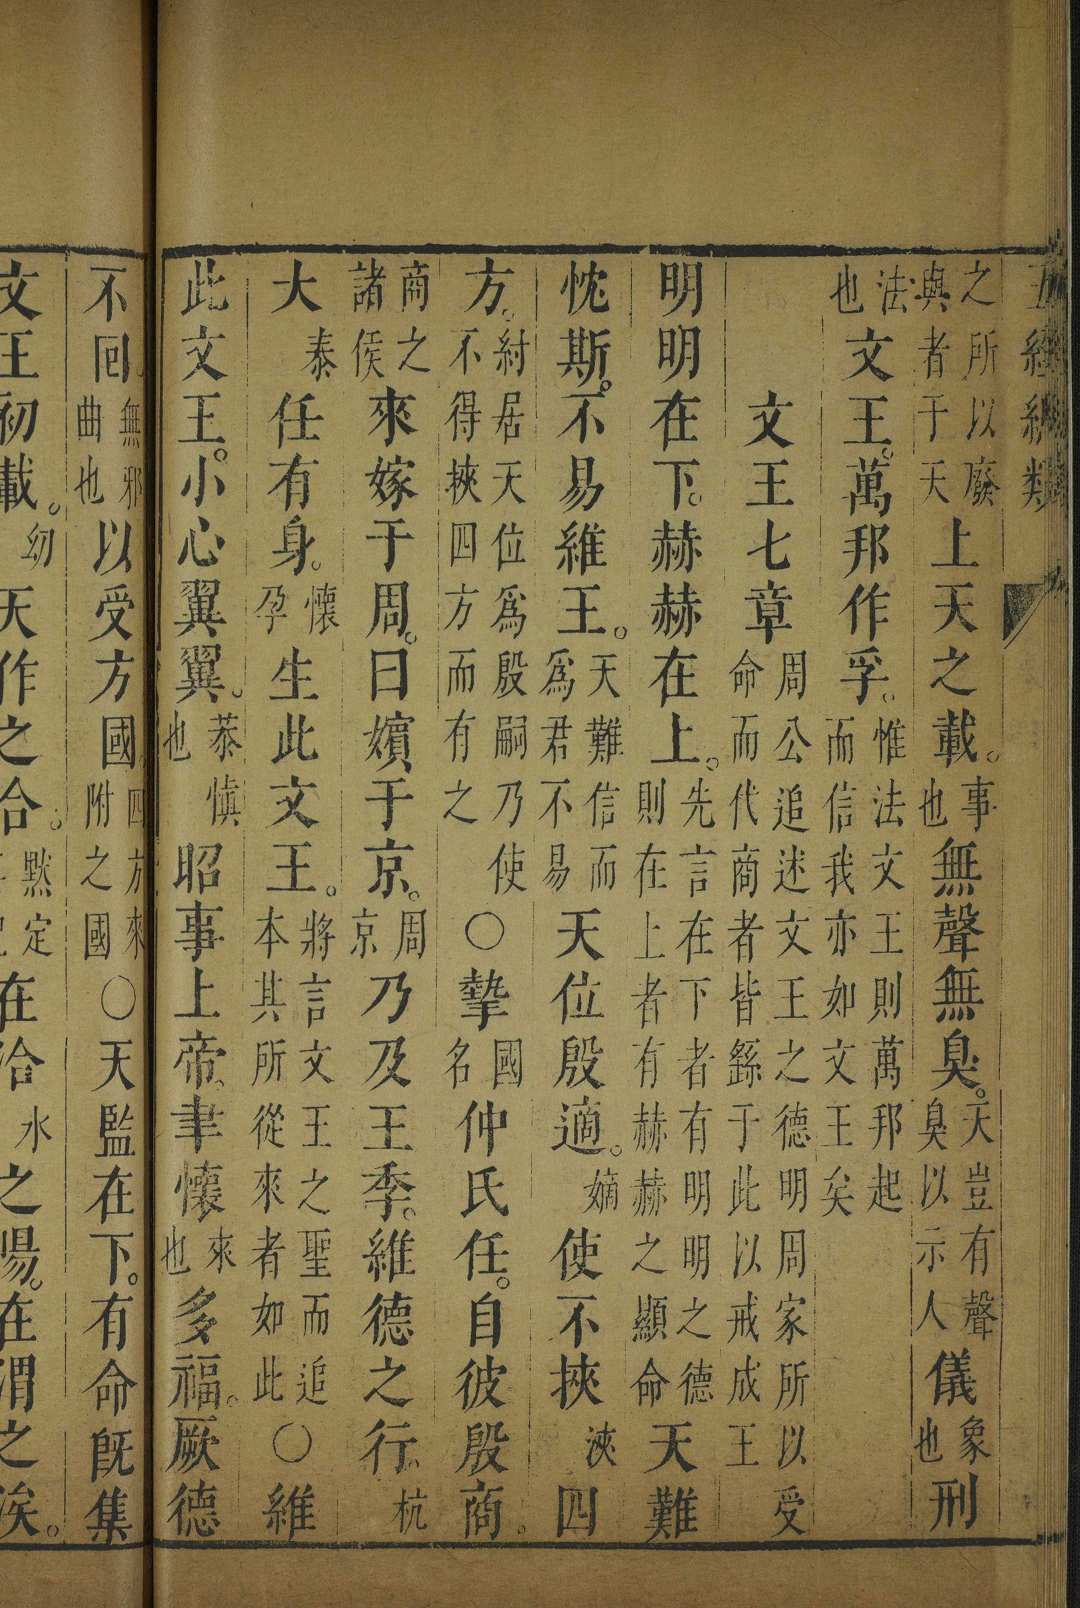 五經
之所以廢與者于天上天之載事也無聲無臭天豈有聲臭以示人儀象也刑
法也文王萬邦作孚惟法文王則萬邦起而信我亦如文王矣
文王七章周公追述文王之德明周家所以受命而代商者皆繇于此以戒成王
明明在下赫赫在上先言在下者有明明之德則在上者有赫赫之顯命天難
忱斯不易維王天難信而爲君不易天位殷適嫡使不挾浹四
方紂居天位爲殷嗣乃使不得挾四方而有之○摯國名仲氏任自彼殷商
商之諸侯來嫁于周曰嬪于京周京乃及王季維德之行杭
大泰任有身懷孕生此文王將言文王之聖而追本其所從來者如此○維
此文王小心翼翼恭慎也昭事上帝聿懷來也多福厥德
不回無邪曲也以受方國四方來附之國○天監在下有命旣集
文王初載幼天作之合默定在洽水之陽在渭之涘